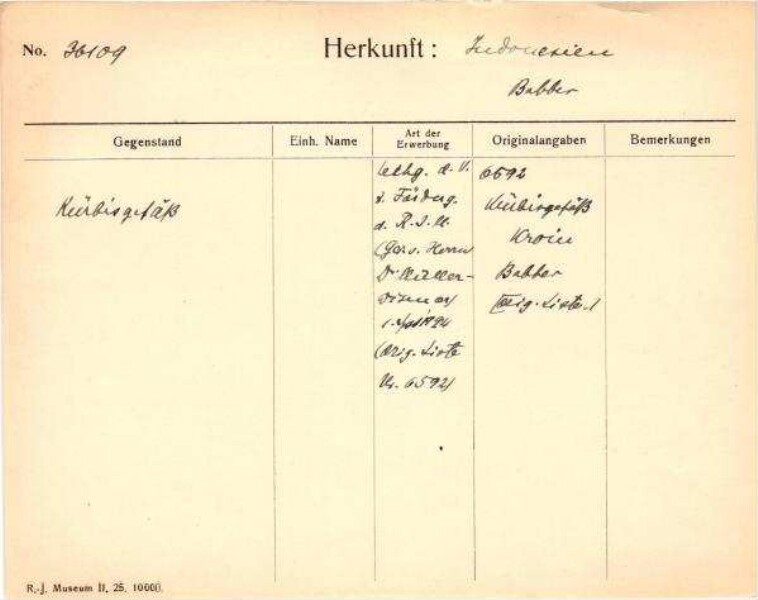 No. 36109
Herkunft: Indonesien
Babber
Gegenstand
Einh. Name
Art der
Erwerbung
Originalangaben
Bemerkungen
Kürbisgefäß
d. V.
z. Fördrg.
d. R. J. M.
(Ges. v. Herrn
Dr Müller-
Wismar)
(Orig. Liste
Nr. 6592)
6592
Kürbisgefäß
Kroin
Babber
(Orig. Liste)
R.-J. Museum II. 25. 10000.